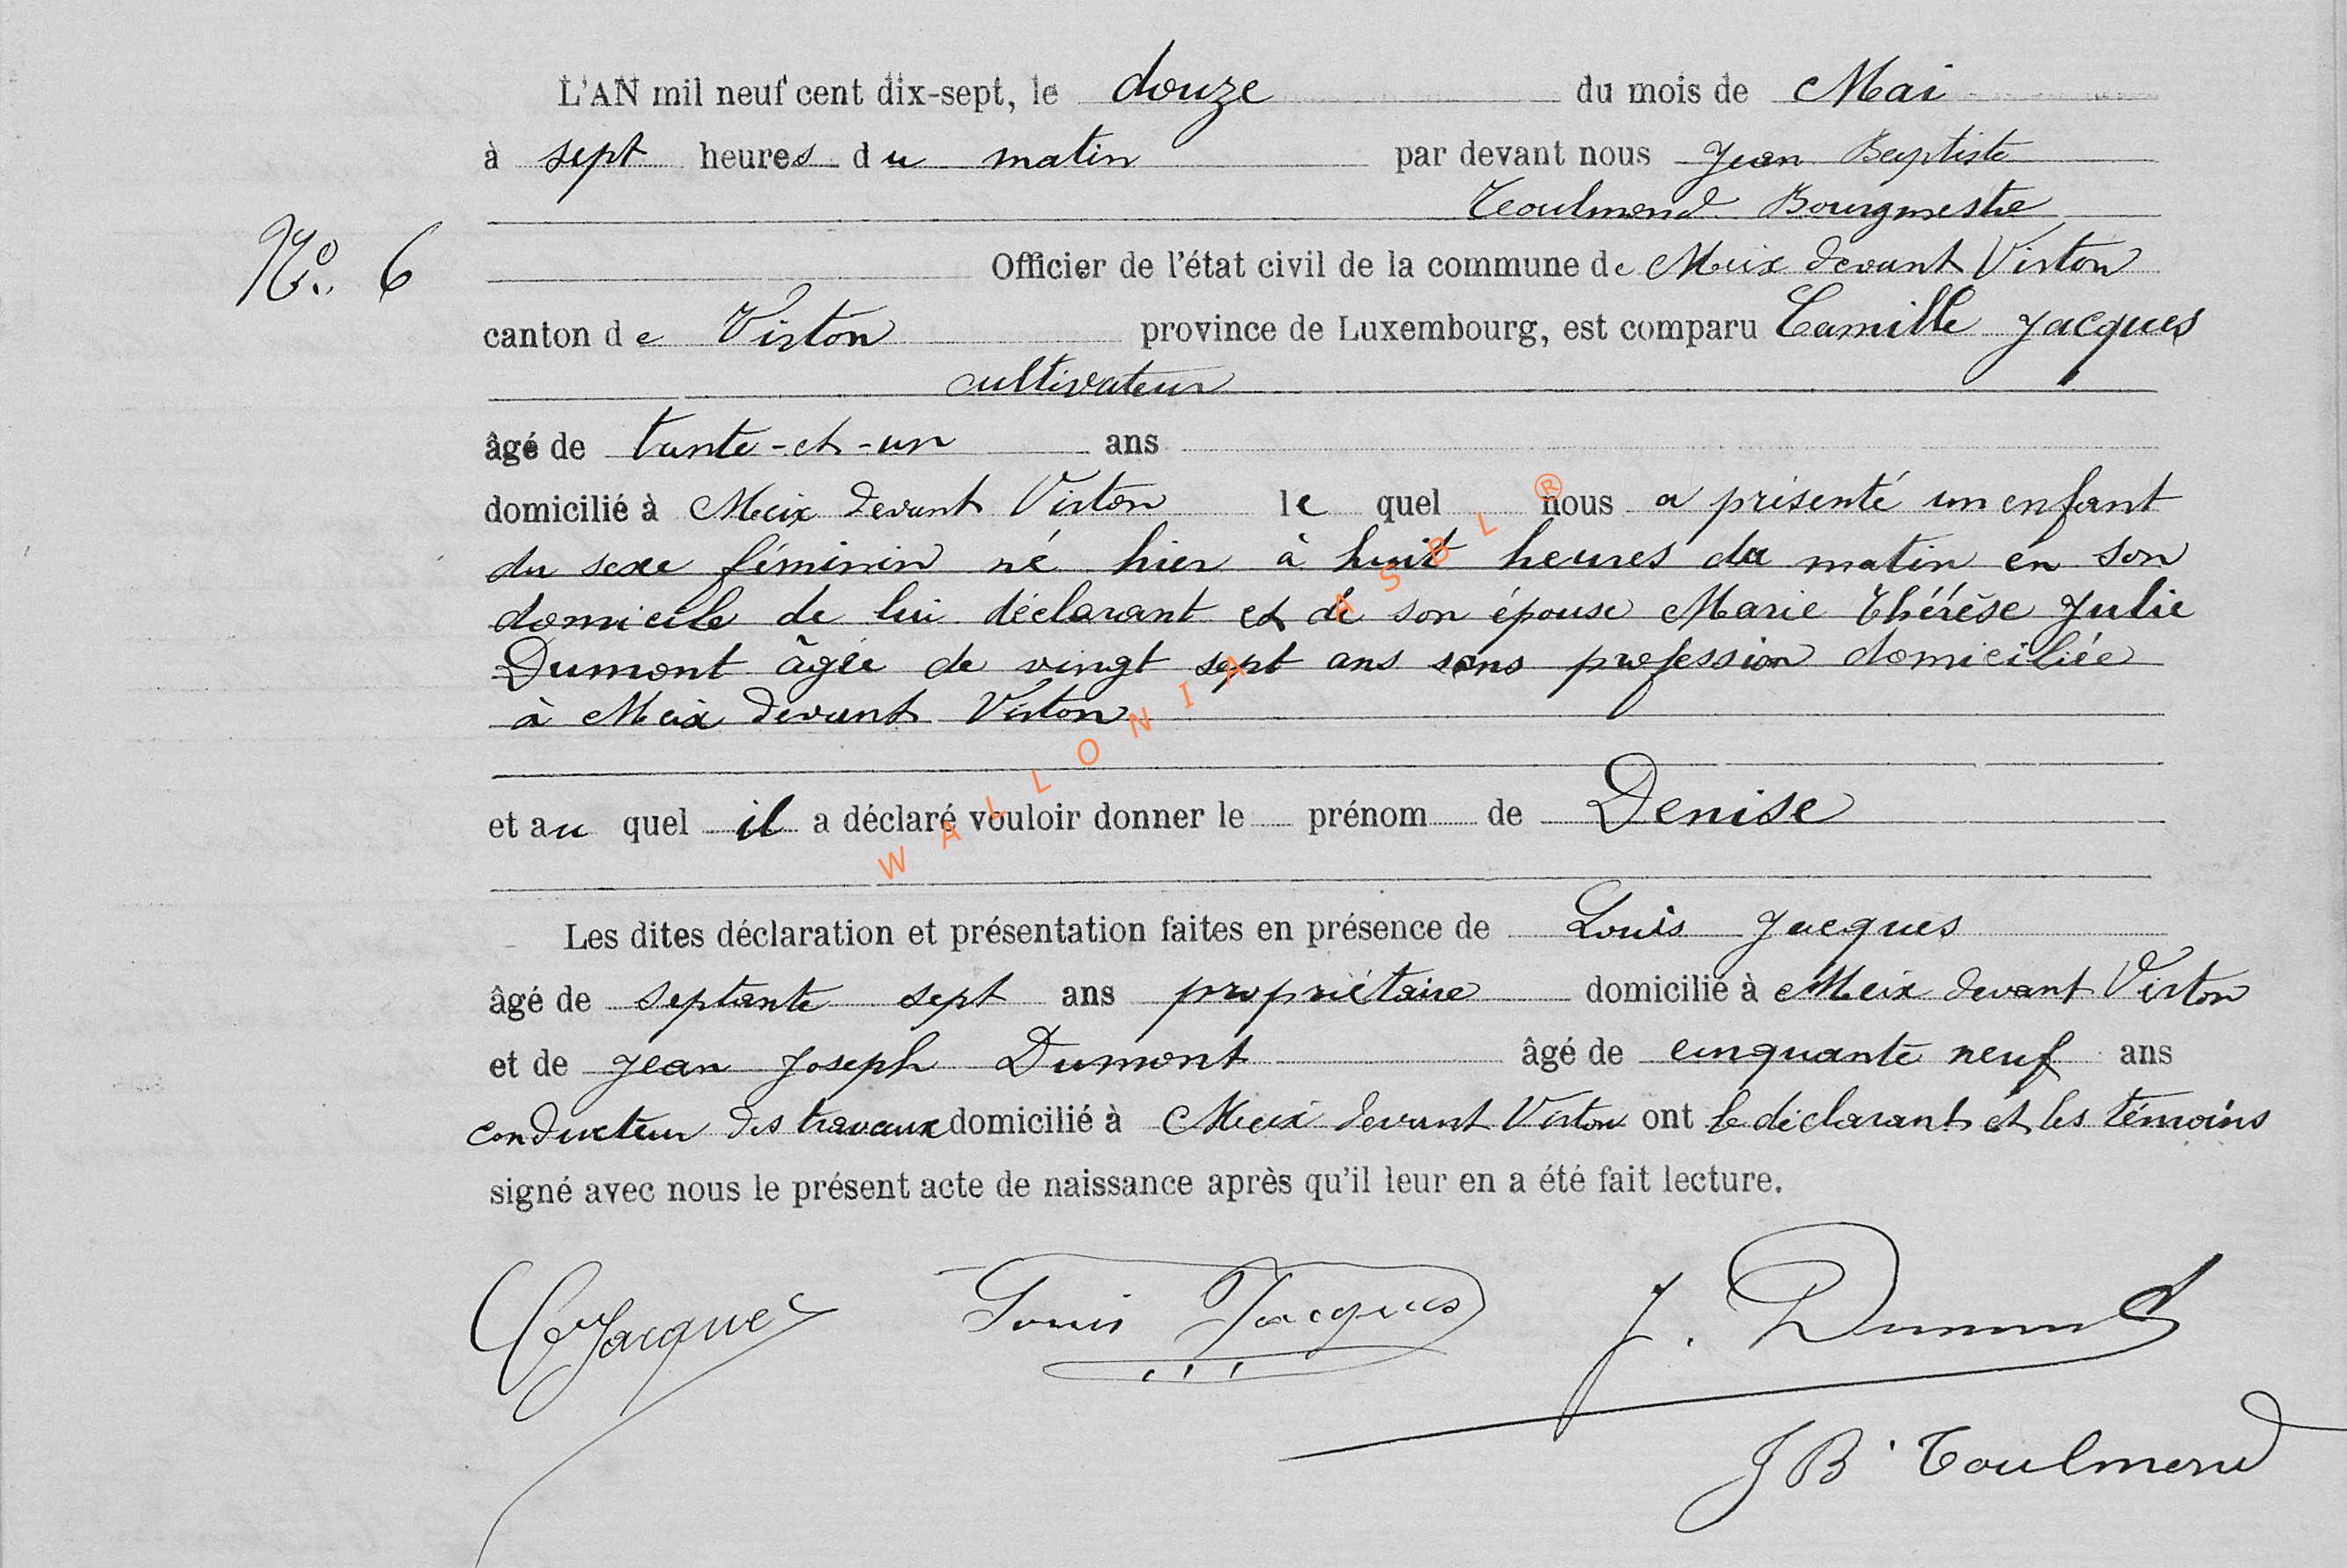 L'AN mil neuf cent dix-sept, le douze du mois de Mai
à sept heures du matin par devant nous Jean Baptiste
Toulmond Bourgmestre
N°. 6
Officier de l'état civil de la commune de Meix devant Virton
canton de Virton province de Luxembourg, est comparu Camille Jacques
cultivateur
âgé de trente-et-un ans
domicilié à Meix devant Virton le quel nous a présenté un enfant
du sexe féminin né hier à huit heures du matin en son
domicile de lui déclarant et de son épouse Marie Thérèse Julie
Dumont âgée de vingt sept ans sans profession domiciliée
à Meix devant Virton
et au quel il a déclaré vouloir donner le prénom de Denise
Les dites déclaration et présentation faites en présence de Louis Jacques
âgé de septante sept ans propriétaire domicilié à Meix devant Virton
et de Jean Joseph Dumont âgé de cinquante neuf ans
conducteur des travaux domicilié à Meix devant Virton ont le déclarant et les témoins
signé avec nous le présent acte de naissance après qu'il leur en a été fait lecture.
C Jacques Louis Jacques J. Dumont
JB Toulmond
WALLONIA ASBL ®